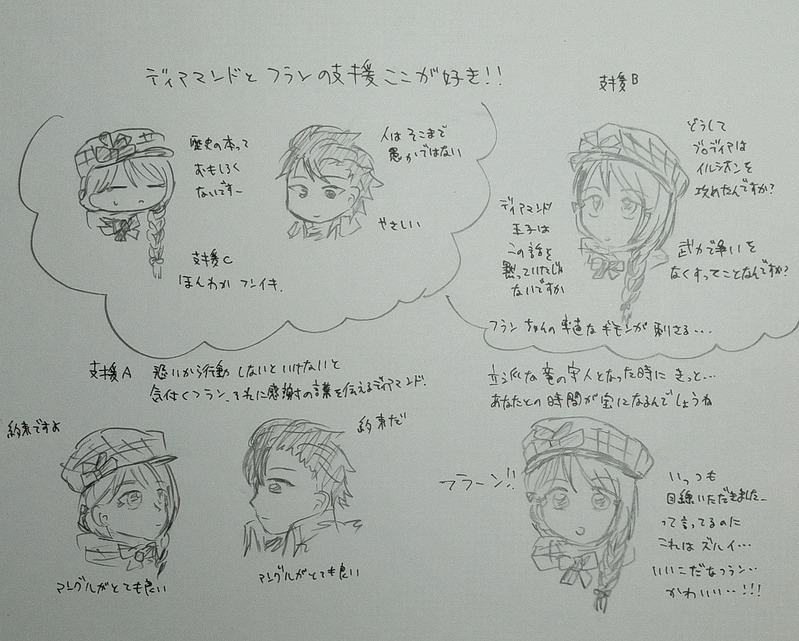 ディアマンドとフランの支援ここが好き!!
歴史の本って
おもしろく
ないですー
人はそこまで
愚かではない
やさしい
支援C
ほんわかフンイキ.
支援B
どうして
ブロディアは
イルシオンを
攻めたんですか?
ディアマンド
王子は
この話を
黙っていたじゃ
ないですか
武力で争いを
なくすってことなんですか?
フランちゃんの率直なギモンが刺さる…
支援A 思いから行動しないといけないと
気付くフラン、それに感謝の言葉を伝えるディアマンド.
約束ですよ
アングルがとても良い
約束だ
アングルがとても良い
立派な竜の守人となった時にきっと…
あなたとの時間が宝になるんでしょうね
フラーン!!
いっつも
目線いただきましたー
って言ってるのに
これはズルイ…
いいこだなフラン…
かわいい…!!!